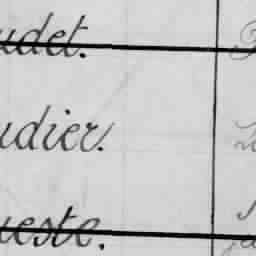 udet.
udier.
ueste.